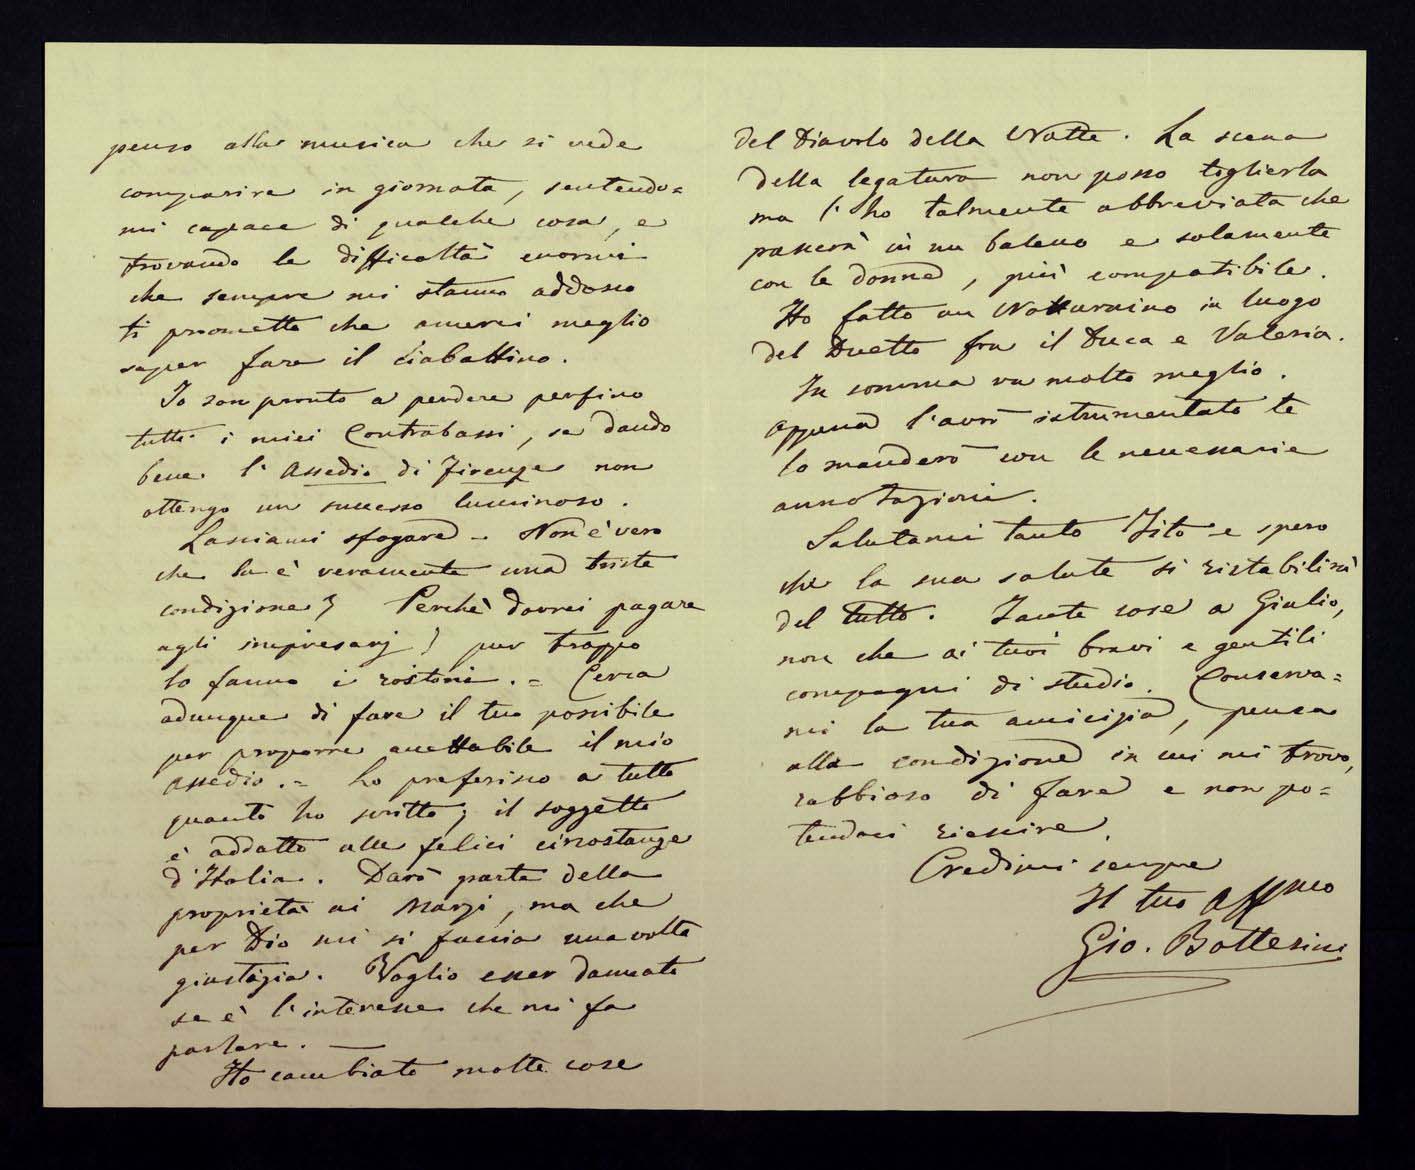 penso alla musica che si vede
comparire in giornata, sentendo=
mi capace di qualche cosa, e
trovando le difficoltà enormi
che sempre mi stanno addosso
ti prometto che amerei meglio
saper fare il ciabattino.
Io son pronto a perdere perfino
tutti i miei Contrabassi, se dando
bene l'Assedio di Firenze non
ottengo un successo luminoso.
Lasciami sfogare - Non è vero
che la è veramente una triste
condizione? Perchè dovrei pagare
agli impresarj? pur troppo
lo fanno i . = Cerca
adunque di fare il tuo possibile
per proporre accettabile il mio
assedio. = Lo preferisco a tutto
quanto ho scritto; il soggetto
è addatto alle felici circostanze
d'Italia. Darò parte della
proprietà ai Marzi, ma che
per Dio mi si faccia una volta
giustizia. Voglio esser dannato
se è l'interesse che mi fa
parlare. —
Ho cambiato molte cose
del Diavolo della Notte. La scena
della legatura non posso toglierla
ma l'ho talmente abbreviata che
passerà in un baleno e solamente
con le donne, più compatibile.
Ho fatto un Notturnino in luogo
del Duetto fra il Duca e Valeria.
In somma va molto meglio.
Appena l'avrò istrumentato te
lo manderò con le necessarie
annotazioni.
Salutami tanto Tito e spero
che la sua salute si ristabilirà
del tutto. Tante cose a Giulio,
non che ai tuoi bravi e gentili
compagni di studio. Conserva=
mi la tua amicizia, pensa
alla condizione in cui mi trovo,
rabbioso di fare e non po=
tendoci riessire.
Credimi sempre
Il tuo Affmo
Gio. Bottesini